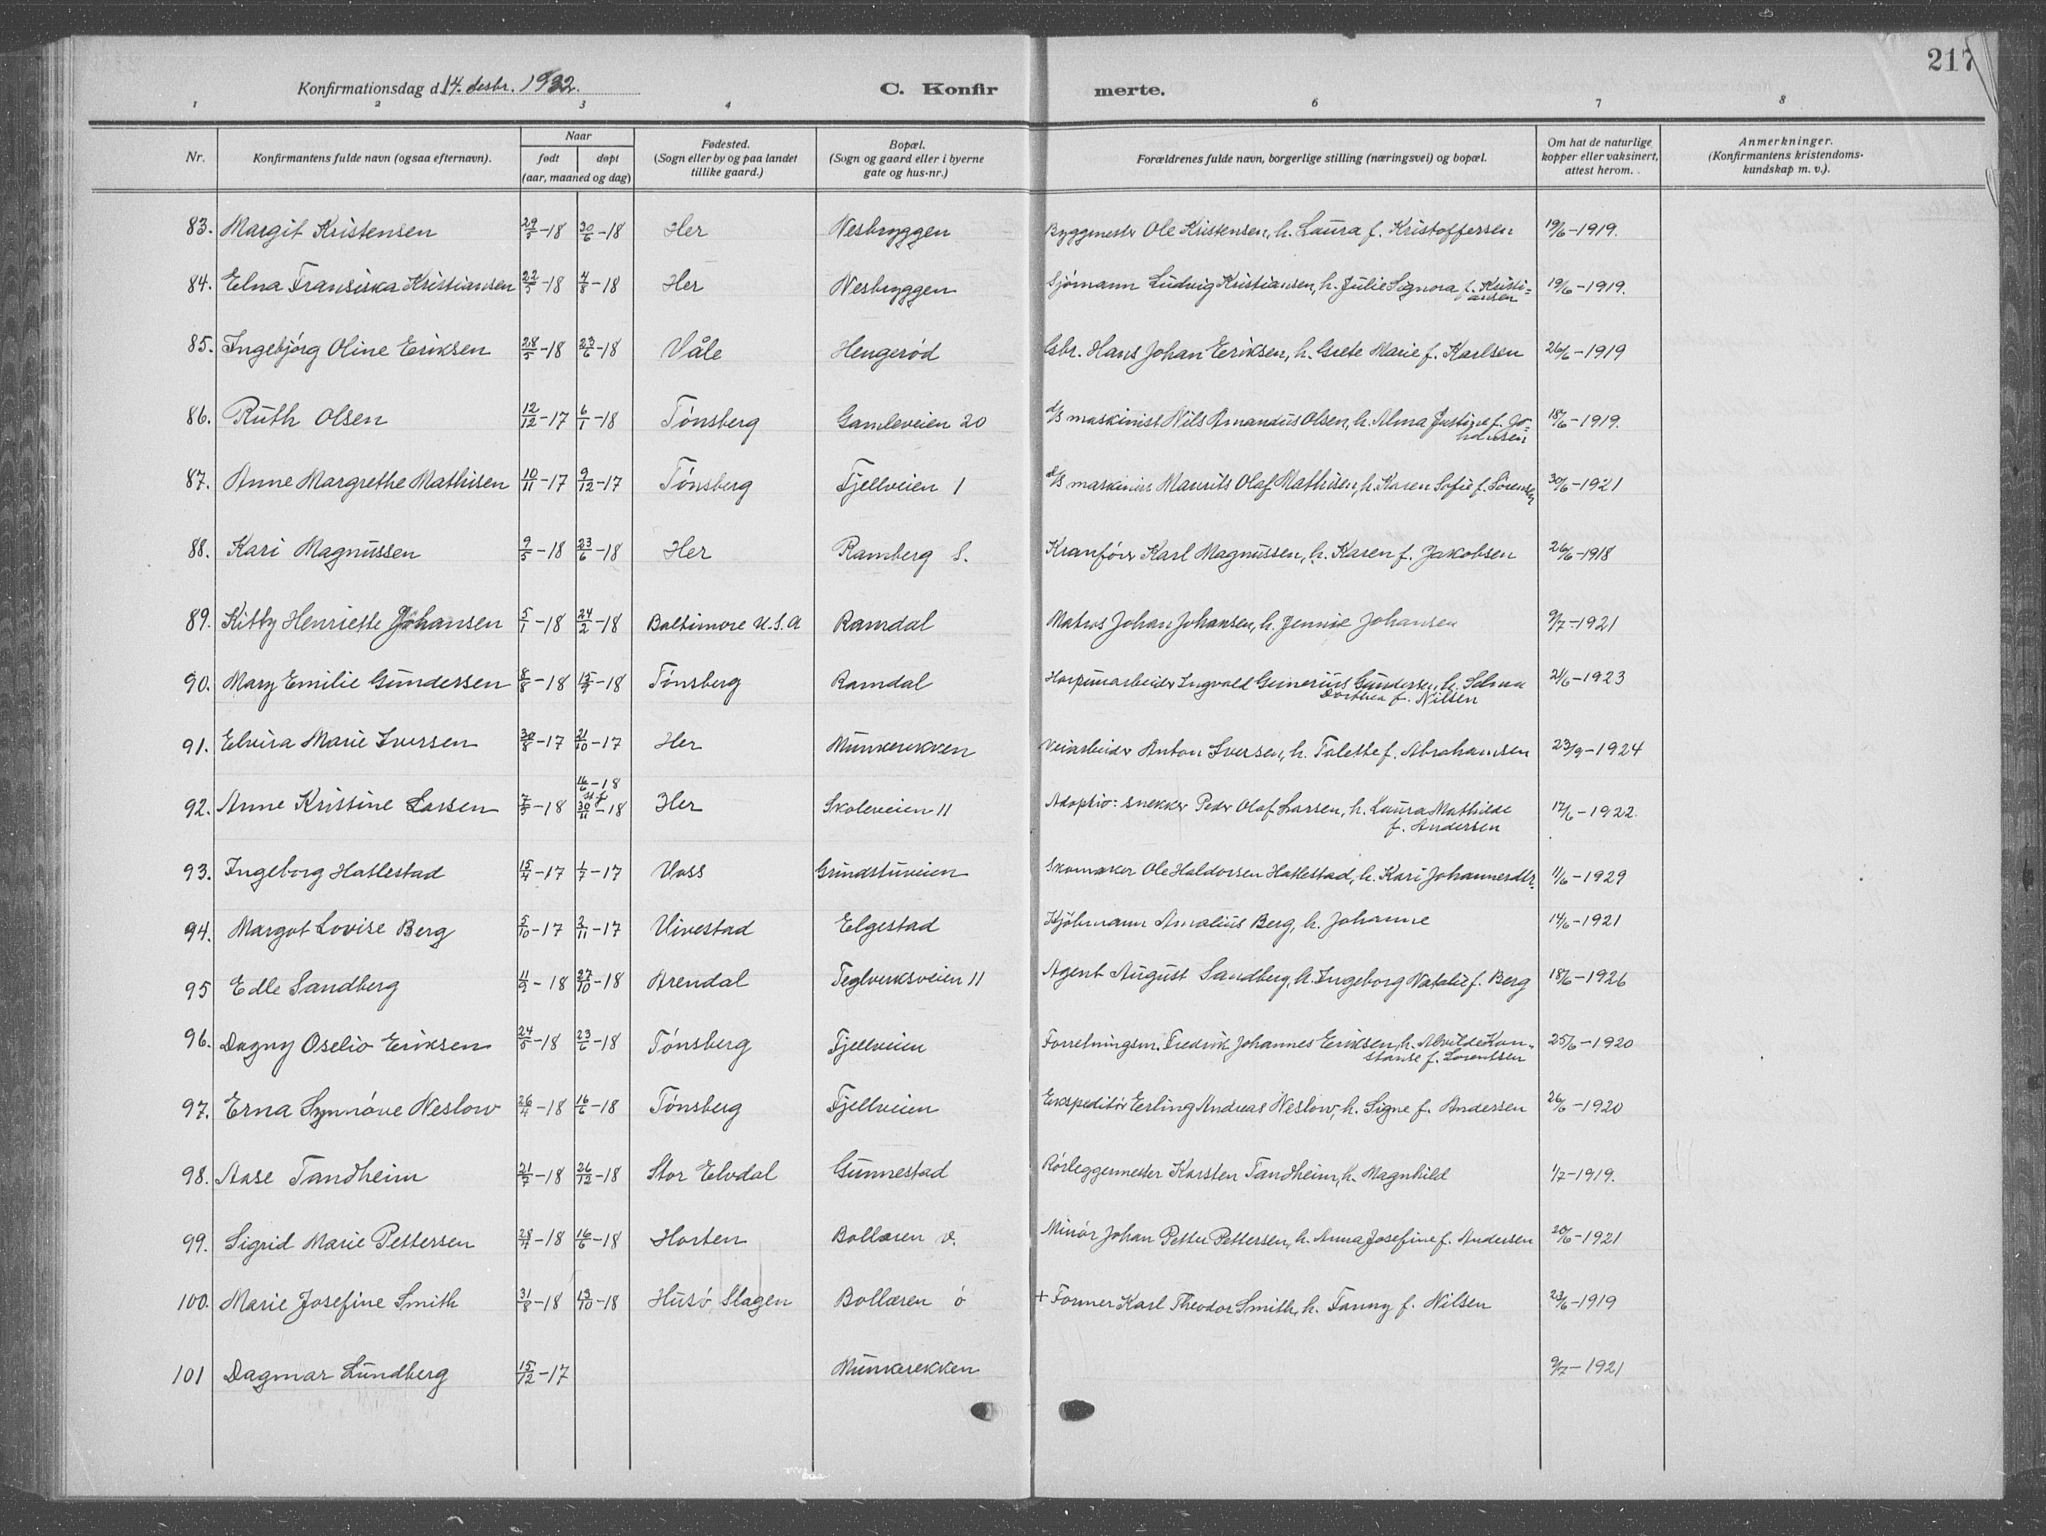 217
Konfirmationsdag d. 14. desbr. 1932.
C. Konfirmerte.
1 2 3 4 5 6 7 8
Nr. Konfirmantens fulde navn (ogsaa efternavn). Naar født døpt (aar, maaned og dag) Fødested. (Sogn eller by og paa landet tillike gaard.) Bopæl. (Sogn og gaard eller i byerne gate og hus-nr.) Forældrenes fulde navn, borgerlige stilling (næringsvei) og bopæl. Om hat de naturlige kopper eller vaksinert, attest herom. Anmerkninger. (Konfirmantens kristendoms-kundskap m. v.).
83. Margit Kristensen 29/5-18 30/6-18 Her Nesbryggen Byggmester Ole Kristensen, h. Laura f. Kristoffersen 19/6-1919.
84. Elna Fransiska Kristiansen 22/5-18 4/8-18 Her Nesbryggen Sjømann Ludvig Kristiansen, h. Julie Signora f. Kristi=
ansen 19/6-1919.
85. Ingebjørg Oline Eriksen 28/5-18 23/6-18 Våle Hengerød Gbr. Hans Johan Eriksen, h. Grete Marie f. Karlsen 26/6-1919
86. Ruth Olsen 12/12-17 6/1-18 Tønsberg Gamleveien 20 d/s maskinist Nils Amandus Olsen, h. Alma Justine f. Jo-
hansen 18/6-1919.
87. Anne Margrethe Mathisen 10/11-17 9/12-17 Tønsberg Fjellveien 1 d/s maskinist Maurits Olaf Mathisen, h. Karen Sofie f. Sørensen 30/6-1921
88. Kari Magnussen 9/5-18 23/6-18 Her Ramberg S. Kranfører Karl Magnussen, h. Karen f. Jakobsen 26/6-1918
89. Kitty Henriette Johansen 5/1-18 24/2-18 Baltimore U.S.A Ramdal Matros Johan Johansen, h. Jennie Johansen 9/7-1921
90. Mary Emilie Gundersen 8/8-18 15/9-18 Tønsberg Ramdal Harpunarbeider Ingvald Gunerius Gundersen, h. Selma
Dorthea f. Nilsen 21/6-1923
91. Elvira Marie Iversen 30/8-17 21/10-17 Her Munkerekken Veiarbeider Anton Iversen, h. Talette f. Abrahamsen 23/9-1924
92. Anne Kristine Larsen 7/5-18 16/6-18 st.f. 30/11-18 Her Skoleveien 11 Adoptiv: snekker Peder Olaf Larsen, h. Laura Mathilde
f. Andersen 17/6-1922.
93. Ingeborg Hatlestad 15/4-17 1/7-17 Voss Grindstuveien Skomaker Ole Haldorsen Hatlestad, h. Kari Johannesdtr. 11/6-1929
94. Margot Lovise Berg 5/10-17 2/11-17 Vivestad Elgestad Kjøbmann Amalius Berg, h. Johanne 14/6-1921
95 Edle Sandberg 11/9-18 27/10-18 Arendal Teglverksveien 11 Agent August Sandberg, h. Ingeborg Natalie f. Berg 18/6-1926
96. Dagny Oselio Eriksen 24/5-18 23/6-18 Tønsberg Fjellveien Forretningsm. Fredrik Johannes Eriksen, h. Alvilde Kon-
stanse f. Lorentsen 25/6-1920
97. Erna Synnøve Neslow 26/4-18 16/6-18 Tønsberg Fjellveien Ekspeditør Erling Andreas Neslow, h. Signe f. Andersen 26/6-1920
98. Aase Tandheim 21/7-18 26/12-18 Stor Elvdal Gunnestad Rørleggermester Karsten Tandheim, h. Magnhild 1/7-1919.
99. Sigrid Marie Pettersen 28/4-18 16/6-18 Horten Bollæren v. Minør Johan Petter Pettersen, h. Anna Josefine f. Andersen 20/6-1921
100. Marie Josefine Smith 31/8-18 13/10-18 Husø, Slagen Bollæren ø + Former Karl Theodor Smith, h. Fanny f. Nilsen 23/6-1919
101 Dagmar Lundberg 15/12-17 Munkerekken 9/7-1921